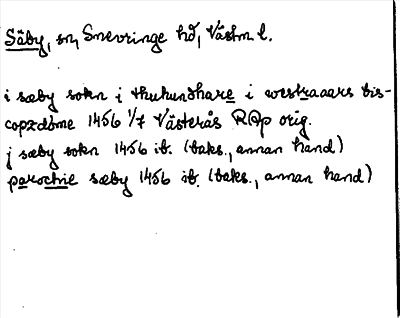 Säby, sn, Snevringe hd, Västm l.
i sæby sokn i thuhundhare i westraaars bis-
copzdöme 1456 1/7 Västerås RAp orig.
j sæby sokn 1456 ib. (baks., annan hand)
parochie sæby 1456 ib. (baks., annan hand)